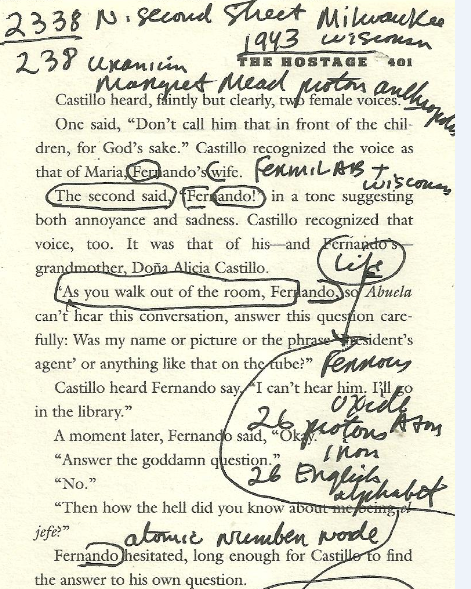 2338 N. second Street Milwaukee
1943 wisconsin
238 uranium
THE HOSTAGE 401
Margret Mead proton anthropolo
Castillo heard, faintly but clearly, two female voices.
One said, “Don’t call him that in front of the chil-
dren, for God’s sake.” Castillo recognized the voice as
that of Maria, Fernando’s wife. FERMILAB +
wisconsin
The second said, “Fernando!” in a tone suggesting
both annoyance and sadness. Castillo recognized that
voice, too. It was that of his—and Fernando’s—
grandmother, Doña Alicia Castillo.
Life
“As you walk out of the room, Fernando, so Abuela
can’t hear this conversation, answer this question care-
fully: Was my name or picture or the phrase ‘president’s
agent’ or anything like that on the tube?”
Ferrous
Castillo heard Fernando say, “I can’t hear him. I’ll go
in the library.”
oxide
26 protons Atom
A moment later, Fernando said, “Okay.”
iron
“Answer the goddamn question.”
26 English
alphabet
“No.”
“Then how the hell did you know about me being el
jefe?”
atomic number node
Fernando hesitated, long enough for Castillo to find
the answer to his own question.